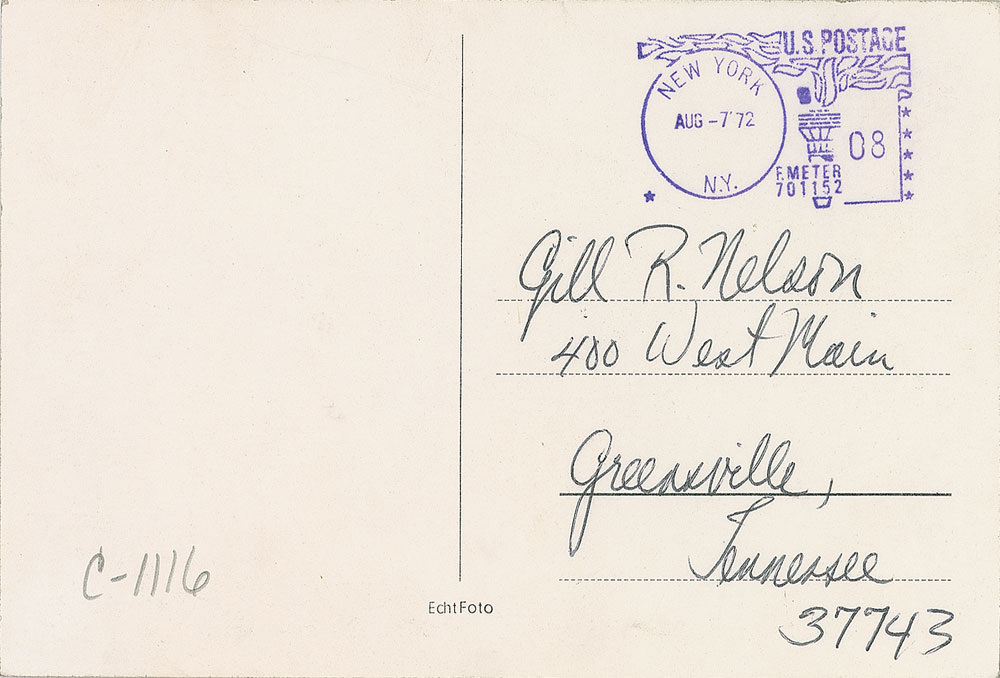 U.S. POSTAGE
NEW YORK
AUG -7'72
N.Y.
08
P.METER
701152
Gill R. Nelson
400 West Main
Greensville,
Tennessee
37743
C-1116
EchtFoto